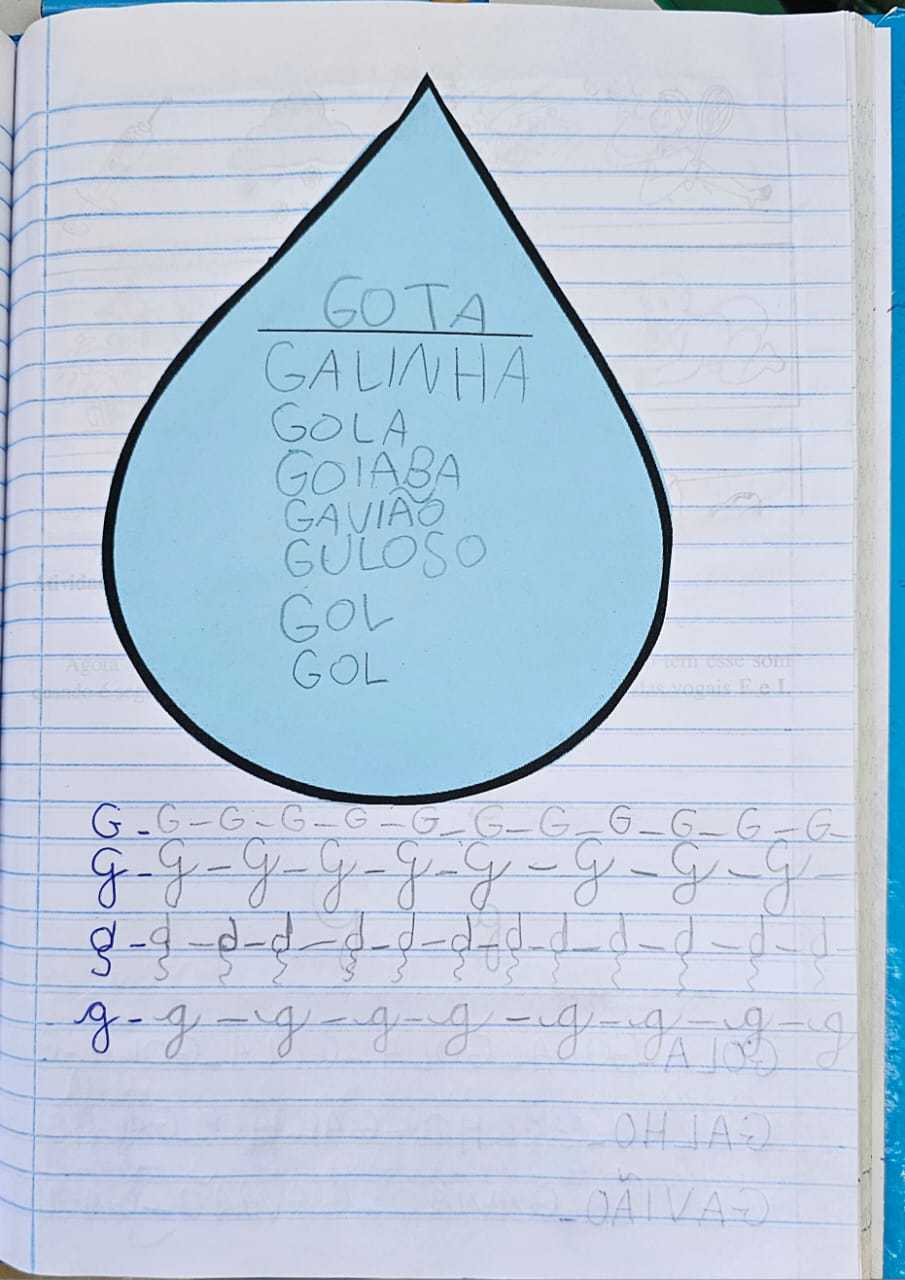 GOTA
GALINHA
GOLA
GOIABA
GAVIÃO
GULOSO
GOL
GOL
G - G - G - G - G - G - G - G - G - G - G - G
G - G - G - G - G - G - G - G - G -
g - g - g - g - g - g - g - g - g - g - g - g - g
g - g - g - g - g - g - g - g - g
GOLA
GALHO
GAVIÃO